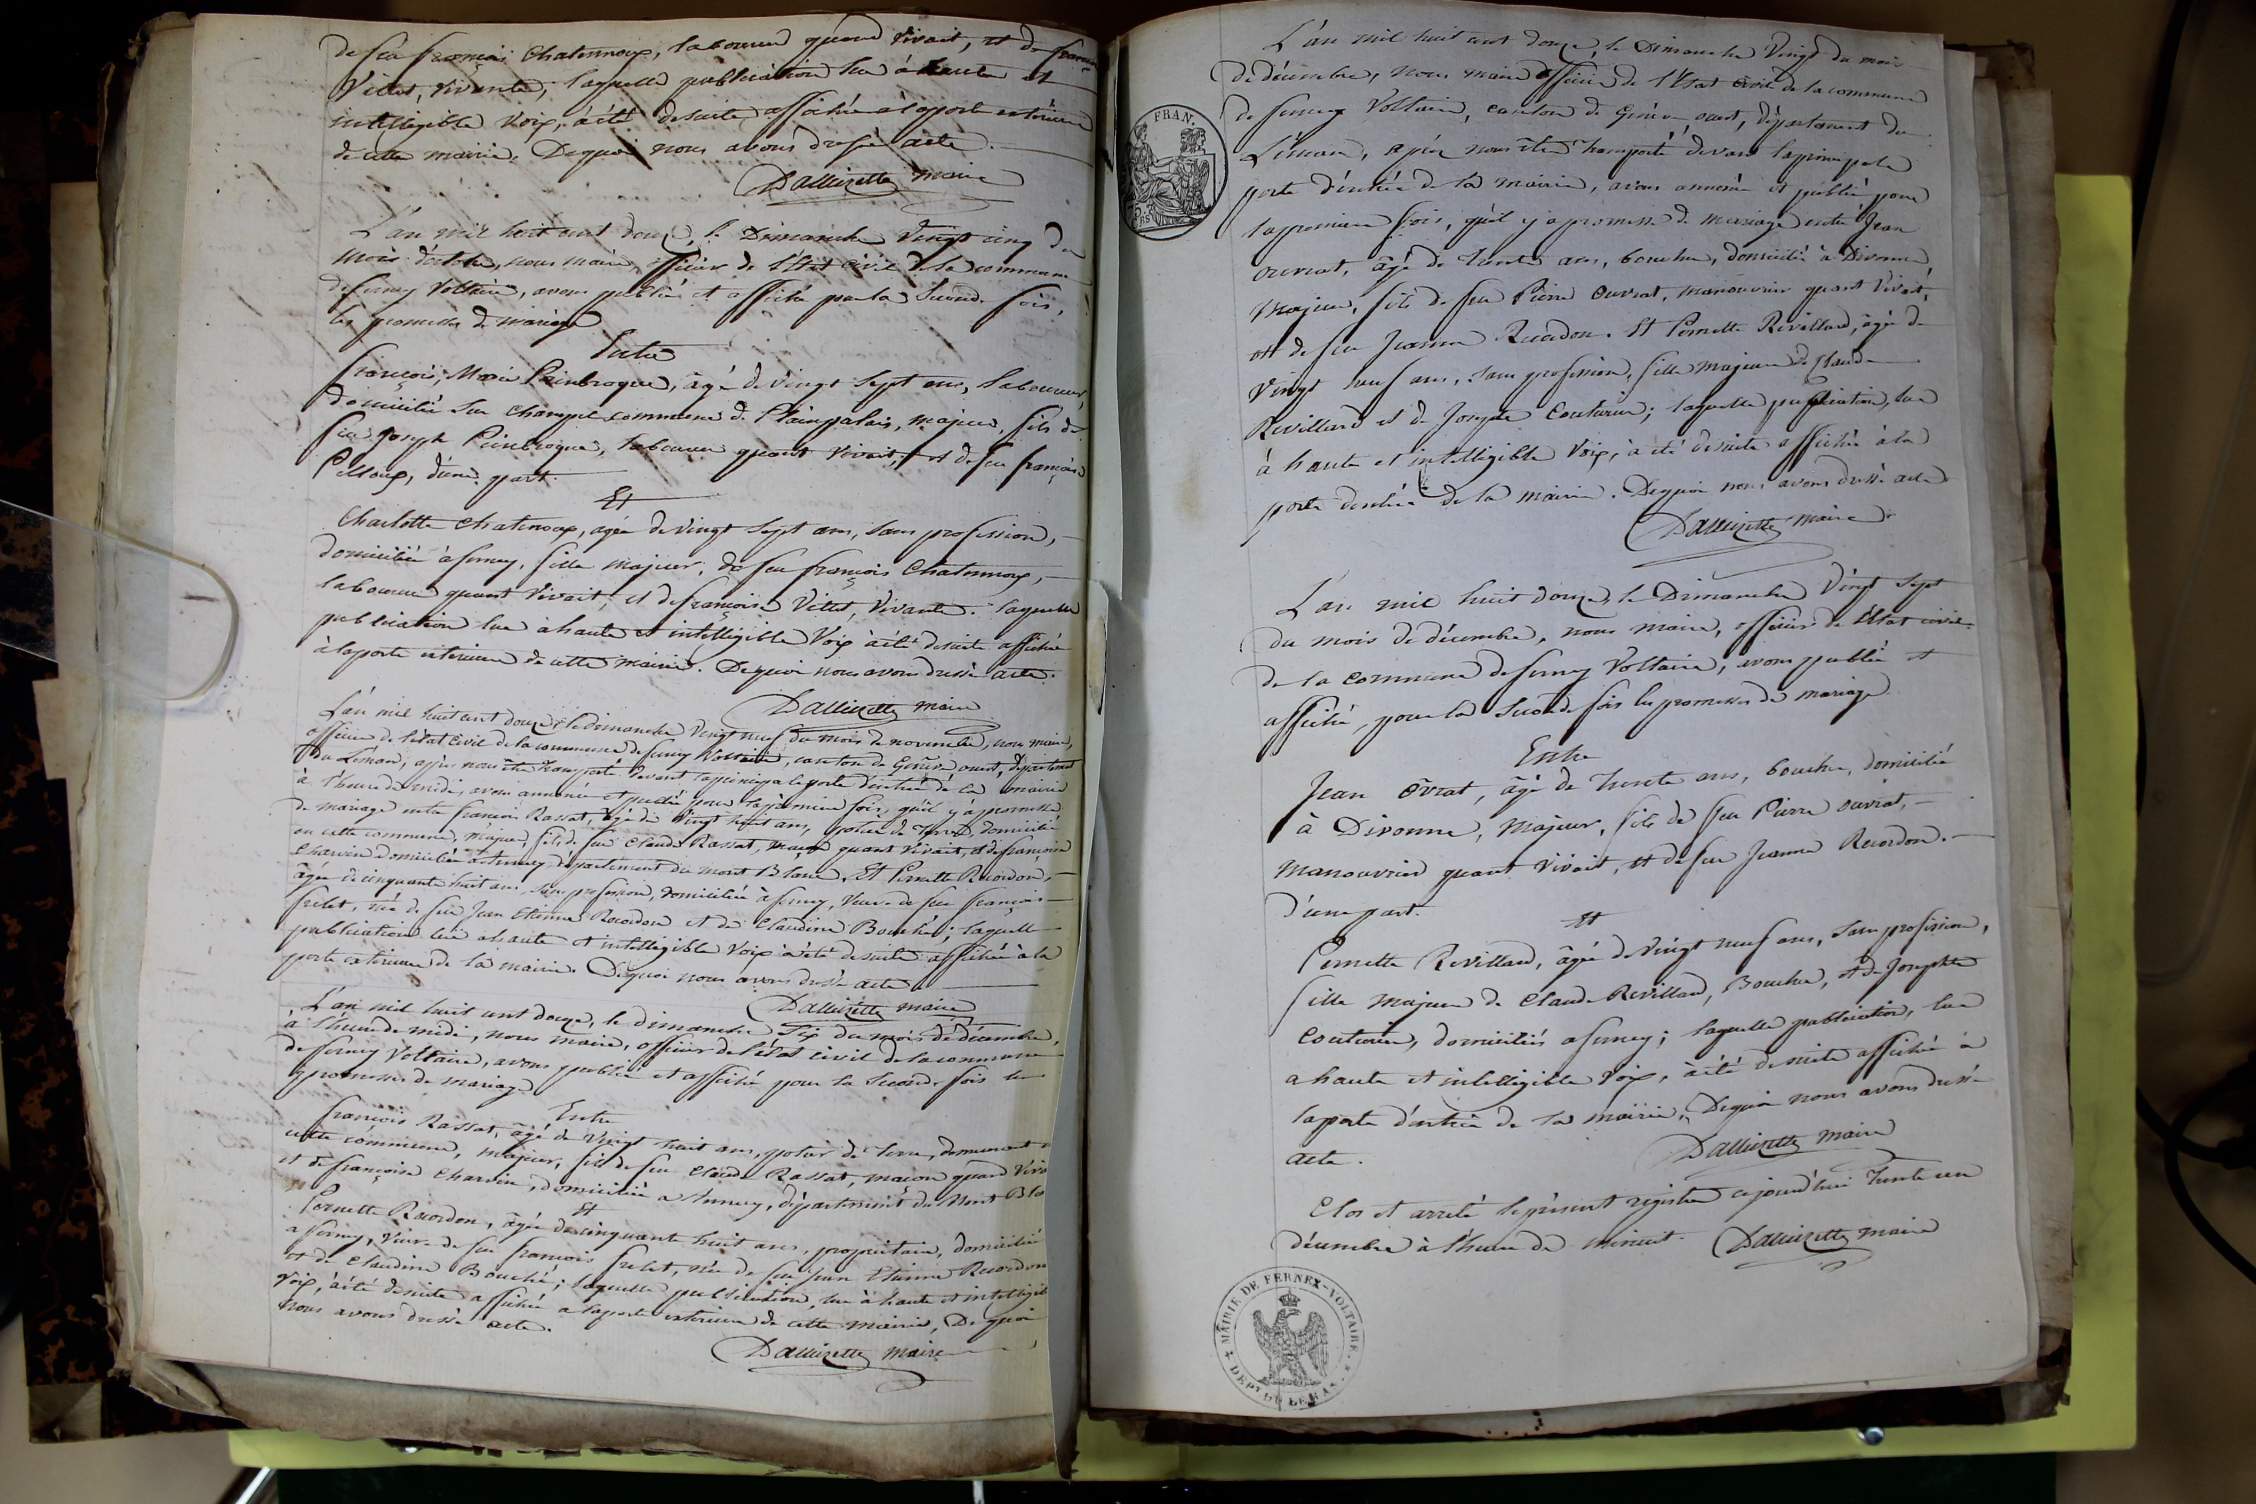 de feu françois Chatenoux, laboureur quand vivait, et de françoise
Vittet, vivante; laquelle publication lue à haute et
intelligible voix, à été desuite affichée à la porte extérieure
de cette mairie. Dequoi nous avons dressé acte.
Dallizette maire
L'an mil huit cent douze, le Dimanche vingt cinq du
mois d'octobre, nous maire, officier de l'Etat civil de la commune
de ferney Voltaire, avons publié et affiché pour la seconde fois,
les promesses de mariage
Entre
françois, Marie Painbroque, âgé de vingt sept ans, laboureur,
domicilié sur Champel commune de Plainpalais, majeur, fils de
feu Joseph Painbroque, laboureur quant vivait, et de feu françoise
Pelloux, d'une part.
Et
Charlotte Chatenoux, agée de vingt sept ans, sans profession,
domiciliée à ferney, fille majeur, de feu françois Chatenoux,
laboureur quant vivait, et de françoise Vittet, vivante. laquelle
publication lue à haute et intelligible voix à été desuite affichée
à la porte exterieure de cette mairie. Dequoi nous avons dressé acte.
Dallizette maire
L'an mil huit cent douze, le dimanche vingt neuf du mois de novembre, nous maire,
officier de l'état civil de la commune de ferney Voltaire, canton de Genève ouest, département
du Léman, après nous être transporté devant la principale porte d'entrée de la mairie
à l'heure de midi, avons annoncé et publié pour la première fois, qu'il y a promesse
de mariage entre françois Rassat, âgé de vingt huit ans, potier de terre, domicilié
en cette commune, majeur, fils de feu Claude Rassat, maçon quant vivait, et de françoise
Charvin domiciliée à Annecy département du mont Blanc. Et Pernette Recordon,
âgée de cinquante huit ans, sans profession, domiciliée à ferney, veuve de feu françois
frelet, née de feu Jean Etienne Recordon et de Claudine Bouché; laquelle
publication lue à haute et intelligible voix à été desuite affichée à la
porte exterieure de la mairie. Dequoi nous avons dressé acte.
Dallizette maire
L'an mil huit cent douze, le dimanche six du mois de décembre,
à l'heure de midi, nous maire, officier de l'état civil de la commune
de ferney Voltaire, avons publié et affiché pour la seconde fois les
promesses de mariage
Entre
françois Rassat, âgé de vingt huit ans, potier de terre, demeurant
cette commune, majeur, fils de feu Claude Rassat, maçon quand viv
et de françoise Charvin, domiciliée à Annecy, département du Mont Bl
Et
Pernette Recordon, âgée de cinquante huit ans, propriétaire, domiciliée
à ferney, veuve de feu françois frelet, née de feu Jean Etienne Recordon
et de Claudine Bouché; laquelle publication, lue à haute et intelligible
voix, à été desuite affichée à la porte exterieure de cette mairie, Dequoi
nous avons dressé acte.
Dallizette maire
FRAN.
L'an mil huit cent douze, le Dimanche vingt du mois
de décembre, nous maire officier de l'Etat civil de la commune
de ferney Voltaire, canton de Genève ouest, département du
Léman, après nous être transporté devant la principale
porte d'entrée de la mairie, avons annoncé et publié pour
la premiere fois, qu'il y a promesse de mariage entre Jean
ouvrat, âgé de trente ans, boucher, domicilié à Divonne,
Majeur, fils de feu Pierre Ouvrat, manouvrier quant vivait,
et de feu Jeanne Recordon. Et Pernette Revillard, âgée de
vingt neuf ans, sans profession, fille majeure de Claude
Revillard et de Josepte Couturier; laquelle publication, lue
à haute et intelligible voix, à été desuite affichée à la
porte d'entrée de la mairie. Dequoi nous avons dressé acte
Dallizette maire
L'an mil huit douze, le Dimanche vingt sept
du mois de décembre, nous maire, officier de l'état civil
de la commune de ferney Voltaire, avons publié et
affiché, pour la seconde fois les promesses de mariage
Entre
Jean ovrat, âgé de trente ans, boucher, domicilié
à Divonne, majeur, fils de feu Pierre ouvrat,
manouvrier quant vivait, et de feu Jeanne Recordon.
d'une part.
Et
Pernette Revillard, âgée de vingt neuf ans, sans profession,
fille majeure de Claude Revillard, Boucher, et de Josephte
Couturier, domiciliés à ferney; laquelle publication, lue
à haute et intelligible voix, à été desuite affichée à
la porte d'entrée de la mairie, Dequoi nous avons dressé
acte.
Dallizette maire
Clos et arrêté le présent registre ce jourd'hui trente un
décembre à l'heure de minuit. Dallizette maire
MAIRIE DE FERNEX-VOLTAIRE.
DEPT DU LEMAN.